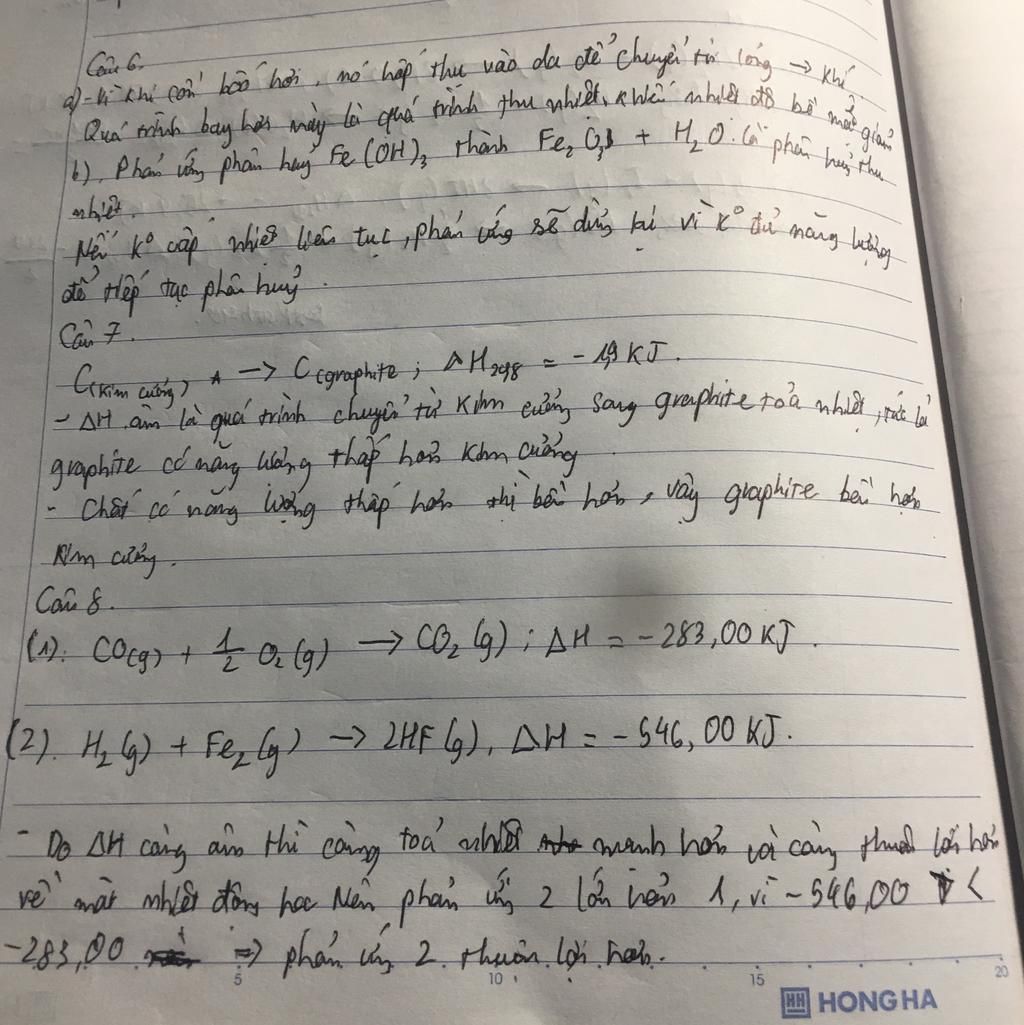 Câu 6.
a) - Vì khi cồn bốc hơi, nó hấp thu vào da để chuyển từ lỏng → khí.
Quá trình bay hơi này là quá trình thu nhiệt, khiến nhiệt độ bề mặt giảm
b). Phản ứng phân huỷ Fe(OH)3 thành Fe2O3 + H2O. Là phân huỷ thu
nhiệt.
Nếu K° cấp nhiệt liên tục, phản ứng sẽ dừng lại vì K° đủ năng lượng
để tiếp tục phân huỷ.
Câu 7.
C(kim cương) → C(graphite; ΔH298 = -1,9 KJ.
- ΔH âm là quá trình chuyển từ kim cương sang graphite toả nhiệt, tức là
graphite có năng lượng thấp hơn kim cương
- Chất có năng lượng thấp hơn thì bền hơn, vậy graphite bền hơn
kim cương.
Câu 8.
(1). CO(g) + 1/2 O2(g) → CO2(g); ΔH = -283,00 KJ.
(2) H2(g) + Fe2(g) → 2HF(g), ΔH = -546,00 KJ.
- Do ΔH càng âm thì càng toả nhiệt mạnh hơn và càng thuận lợi hơn
về mặt nhiệt động học Nên phản ứng 2 lớn hơn 1, vì -546,00 <
-283,00 => phản ứng 2 thuận lợi hơn.
5 10 15 20
HH HONG HA